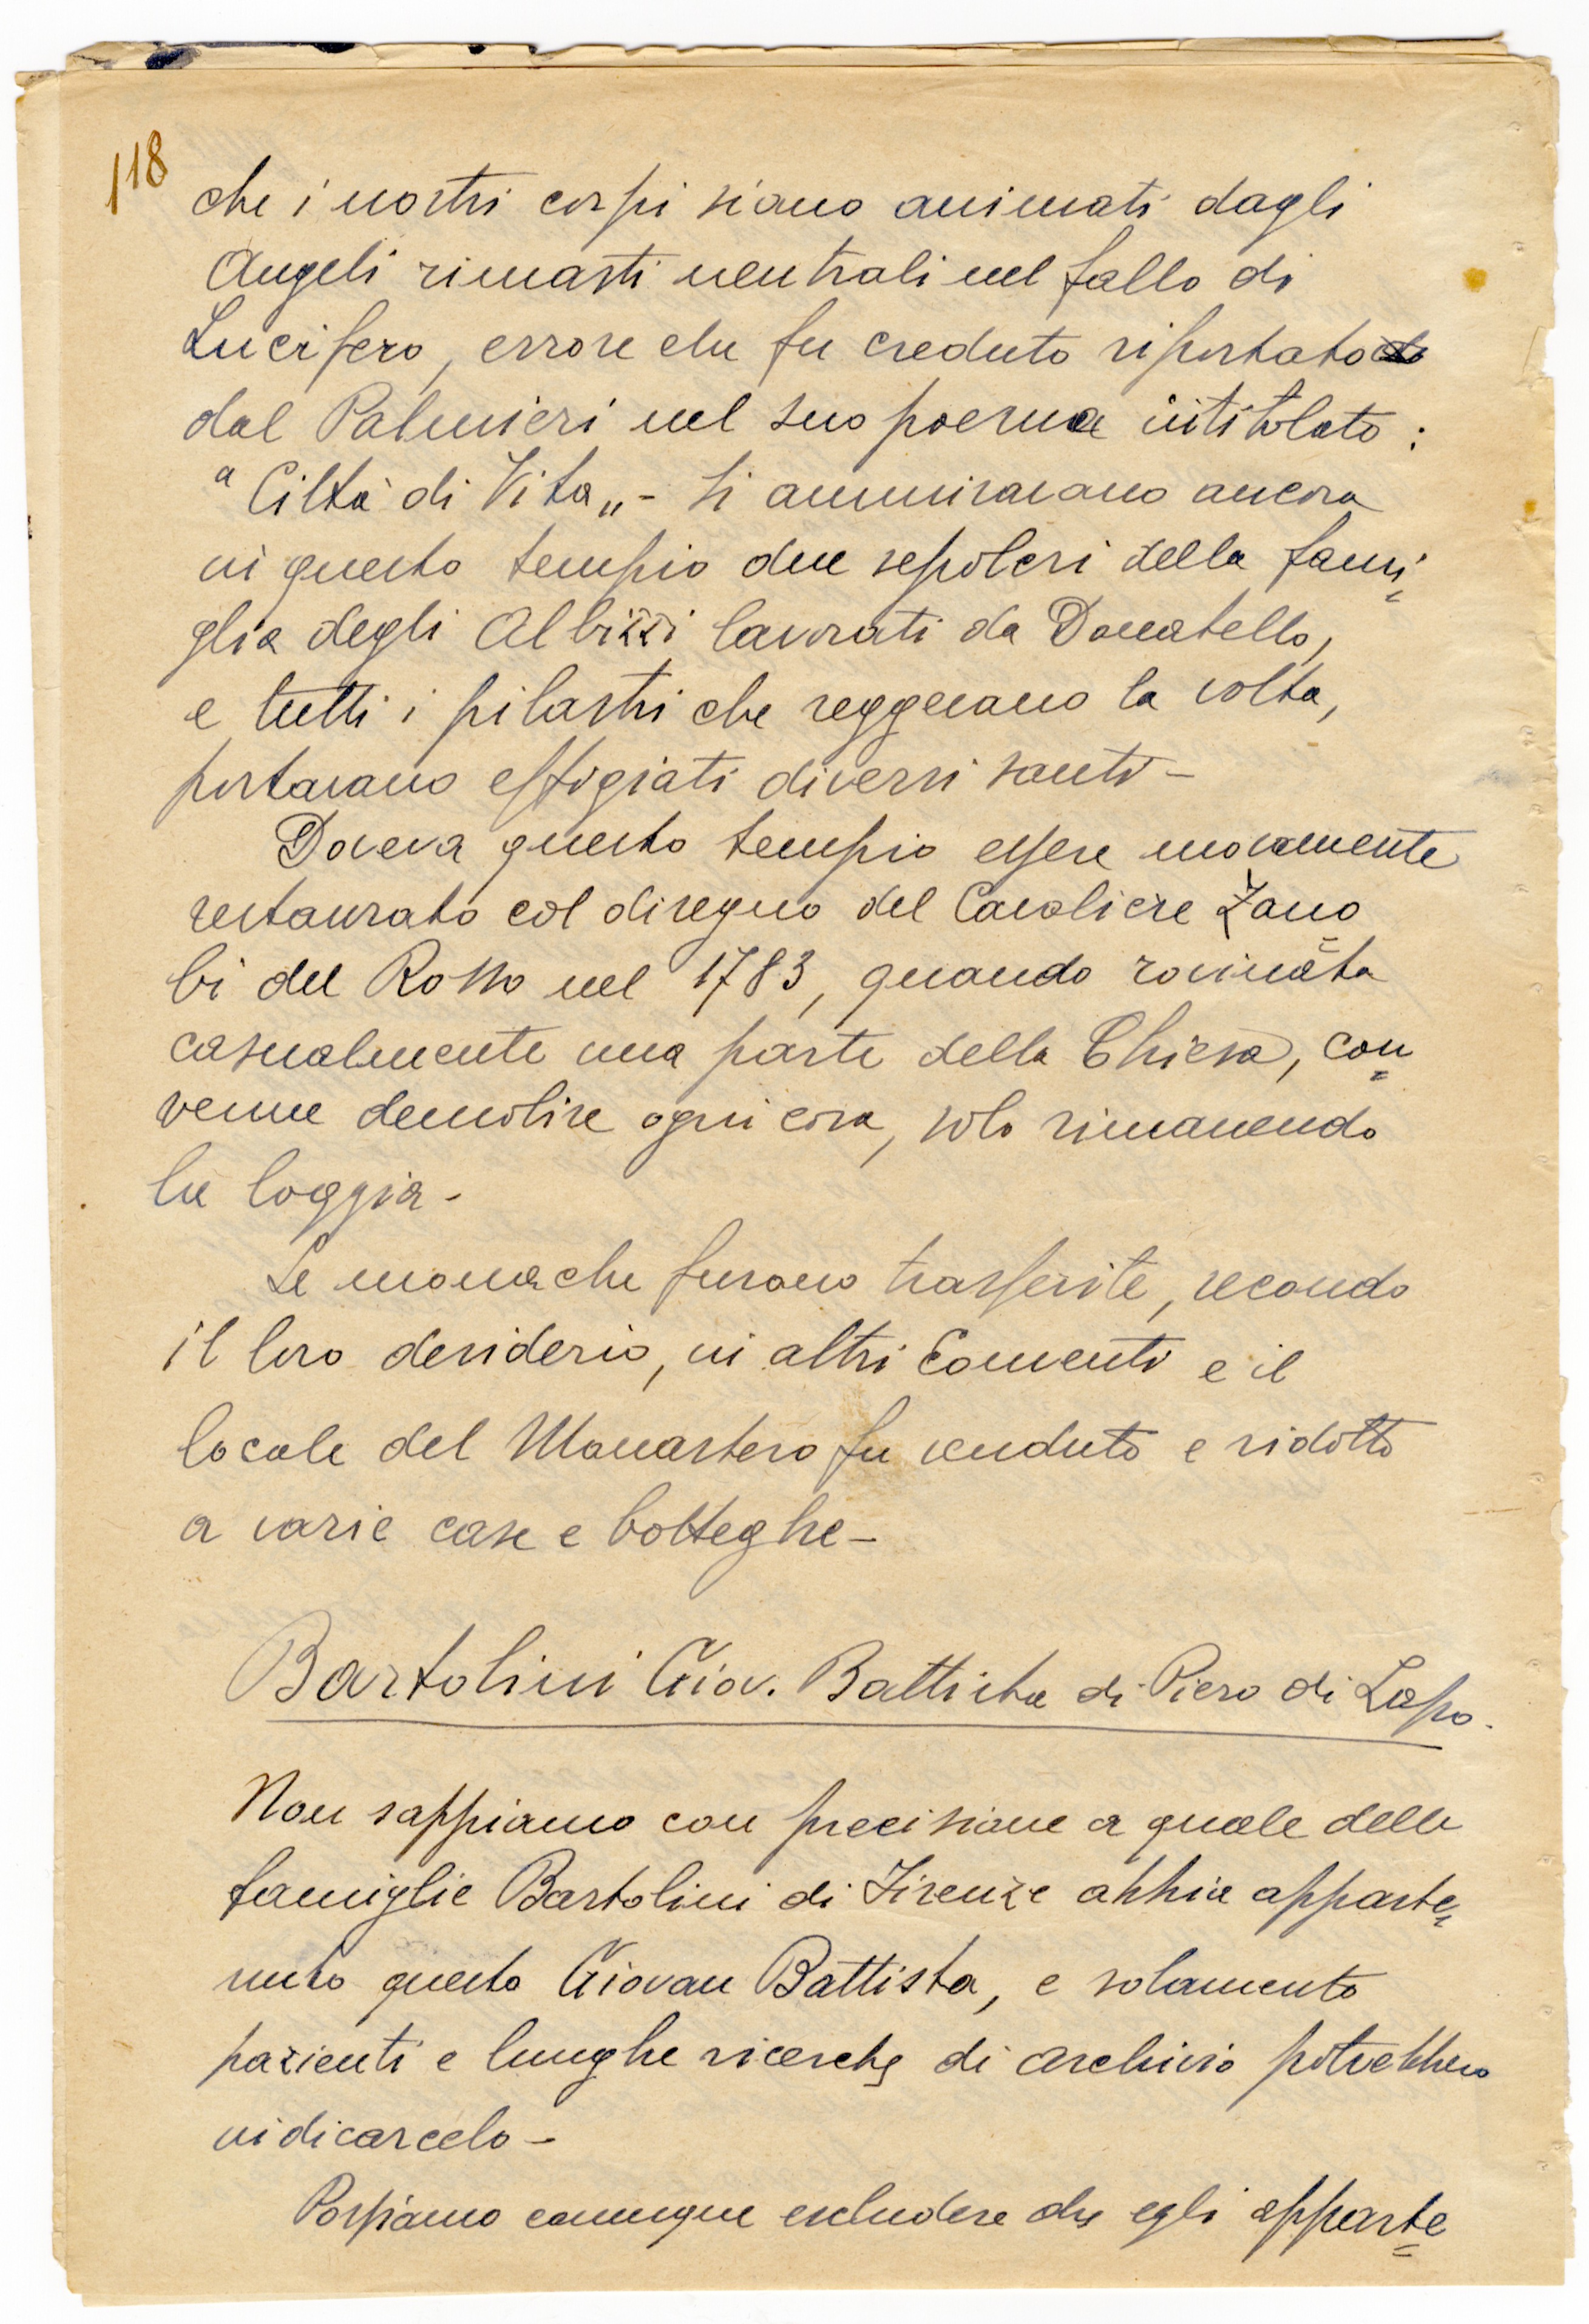 118
che i nostri corpi siano animati dagli
Angeli rimasti neutrali nel fallo di
Lucifero, errore che fu creduto riportato
dal Palmieri nel suo poema intitolato:
"Città di Vita„- Si ammiravano ancora
in questo tempio due sepolcri della fami=
glia degli Albizzi lavorati da Donatello,
e tutti i pilastri che reggevano la volta,
portavano effigiati diversi santi-
Doveva questo tempio essere novamente
restaurato col disegno del Cavaliere Zano=
bi del Rosso nel 1783, quando rovinata
casualmente una parte della Chiesa, con=
venne demolire ogni cosa, solo rimanendo
la loggia-
Le monache furono trasferite, secondo
il loro desiderio, in altri Conventi e il
locale del Monastero fu venduto e ridotto
a varie case e botteghe-
Bartolini Giov. Battista di Piero di Lapo.
Non sappiamo con precisione a quale delle
famiglie Bartolini di Firenze abbia apparte=
nuto questo Giovan Battista, e solamente
pazienti e lunghe ricerche di archivio potrebbero
indicarcelo-
Possiamo comunque escludere che egli apparte=